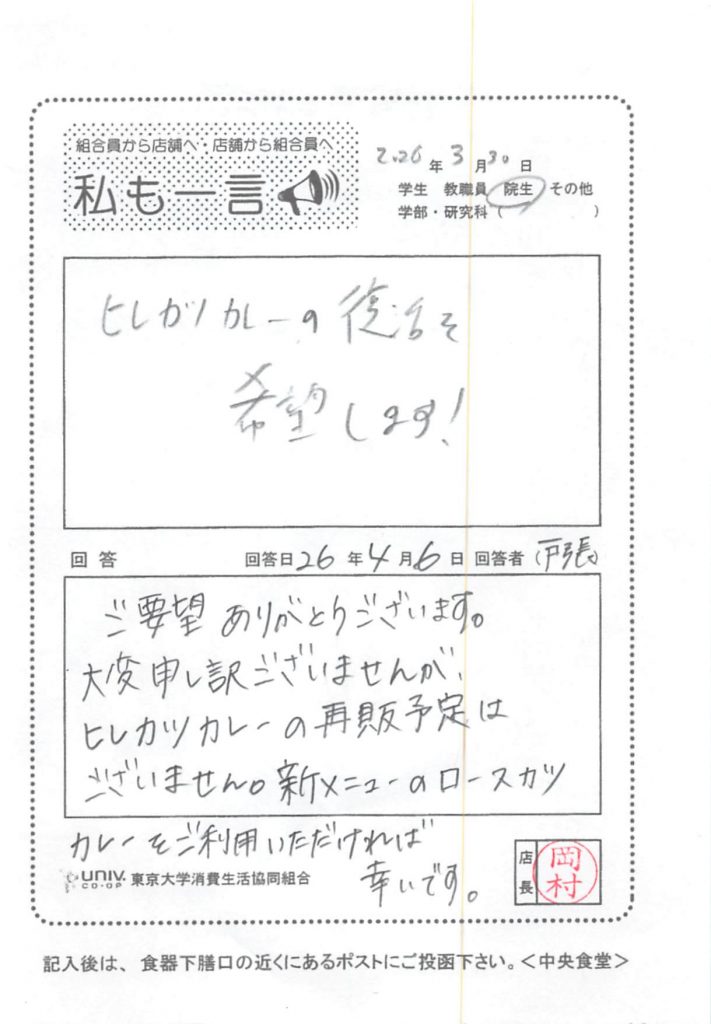 組合員から店舗へ・店舗から組合員へ
私も一言
2026年3月30日
学生 教職員 院生 その他
学部・研究科( )
ヒレカツカレーの復活を
希望します!
回答 回答日26年4月6日 回答者(戸張)
ご要望ありがとうございます。
大変申し訳ございませんが、
ヒレカツカレーの再販予定は
ございません。新メニューのロースカツ
カレーをご利用いただければ
幸いです。
UNIV. CO-OP 東京大学消費生活協同組合
店長 岡村
記入後は、食器下膳口の近くにあるポストにご投函下さい。<中央食堂>